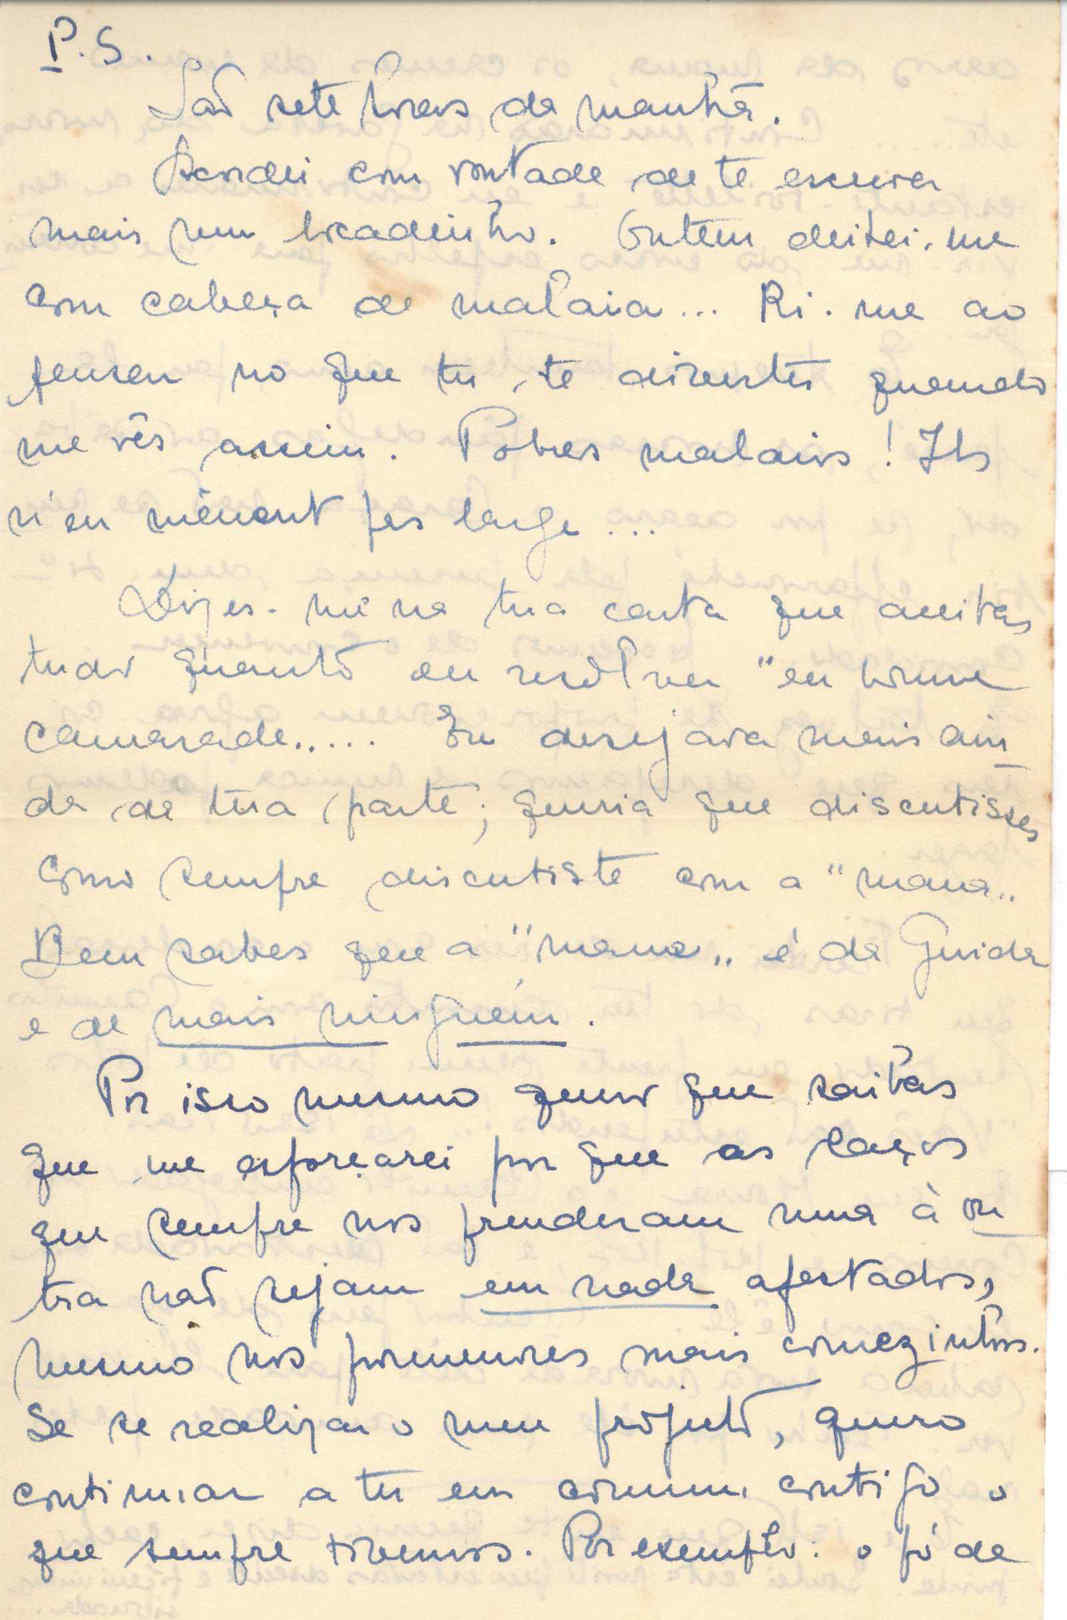 P.S.
São sete horas da manhã.
Acordei com vontade de te escrever
mais um bocadinho. Ontem deitei-me
com cabeça de malaia... Ri-me ao
pensar no que tu te divertes quando
me vês assim. Pobres malaios! Ils
n'en mènent pas large...
Dizes-me na tua carta que aceitas
tudo quanto eu resolver "en bonne
camarade..... Eu desejava mais ain
da de tua parte; queria que discutisses
como sempre discutiste com a "mana..
Bem sabes que a "mana.. é da Guida
e de mais ninguém.
Por isso mesmo quero que saibas
que me esforçarei por que os laços
que sempre nos prenderam uma à ou
tra não sejam em nada afectados,
mesmo nos pormenores mais comezinhos.
Se se realizar o meu projecto, quero
continuar a ter em comum contigo o
que sempre tivemos. Por exemplo: o pó de